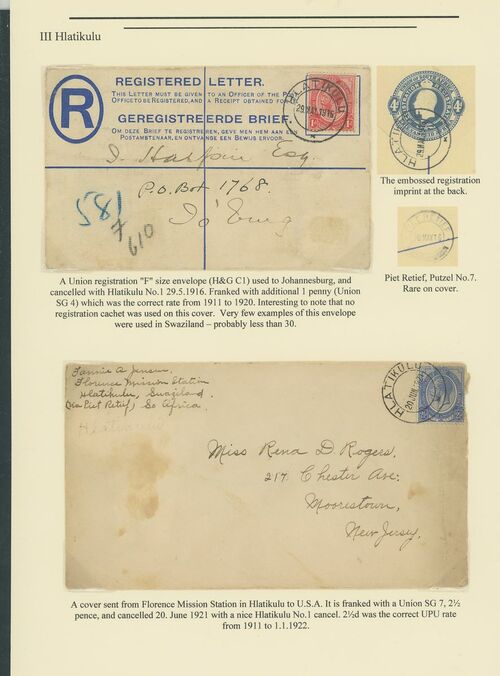 III Hlatikulu
REGISTERED LETTER.
THIS LETTER MUST BE GIVEN TO AN OFFICER OF THE
OFFICE TO BE REGISTERED, AND A RECEIPT OBTAINED FOR
GEREGISTREERDE BRIEF.
OM DEZE BRIEF TE REGISTREREN, GEVE MEN HEM AAN EEN
POSTAMBTENAAR, EN ONTVANGE EEN BEWIJS ERVOOR.
R
HLATIKULU
29.MAY.1916
Esq.
P.O. Box 1768.
Jo'burg
581
7
610
4d 4d
HLATIK
The embossed registration
imprint at the back.
Piet Retief, Putzel No.7.
Rare on cover.
A Union registration "F" size envelope (H&G C1) used to Johannesburg, and
cancelled with Hlatikulu No.1 29.5.1916. Franked with additional 1 penny (Union
SG 4) which was the correct rate from 1911 to 1920. Interesting to note that no
registration cachet was used on this cover. Very few examples of this envelope
were used in Swaziland – probably less than 30.
Fannie A Jensen.
Florence Mission Station
Hlatikulu, Swaziland.
(via Piet Retief) So Africa.
Hlatikulu
HLATIKULU
20.JUN.1921
Miss Rena D. Rogers.
217 Chester Ave.
Moorestown,
New Jersey.
A cover sent from Florence Mission Station in Hlatikulu to U.S.A. It is franked with a Union SG 7, 2½
pence, and cancelled 20. June 1921 with a nice Hlatikulu No.1 cancel. 2½d was the correct UPU rate
from 1911 to 1.1.1922.